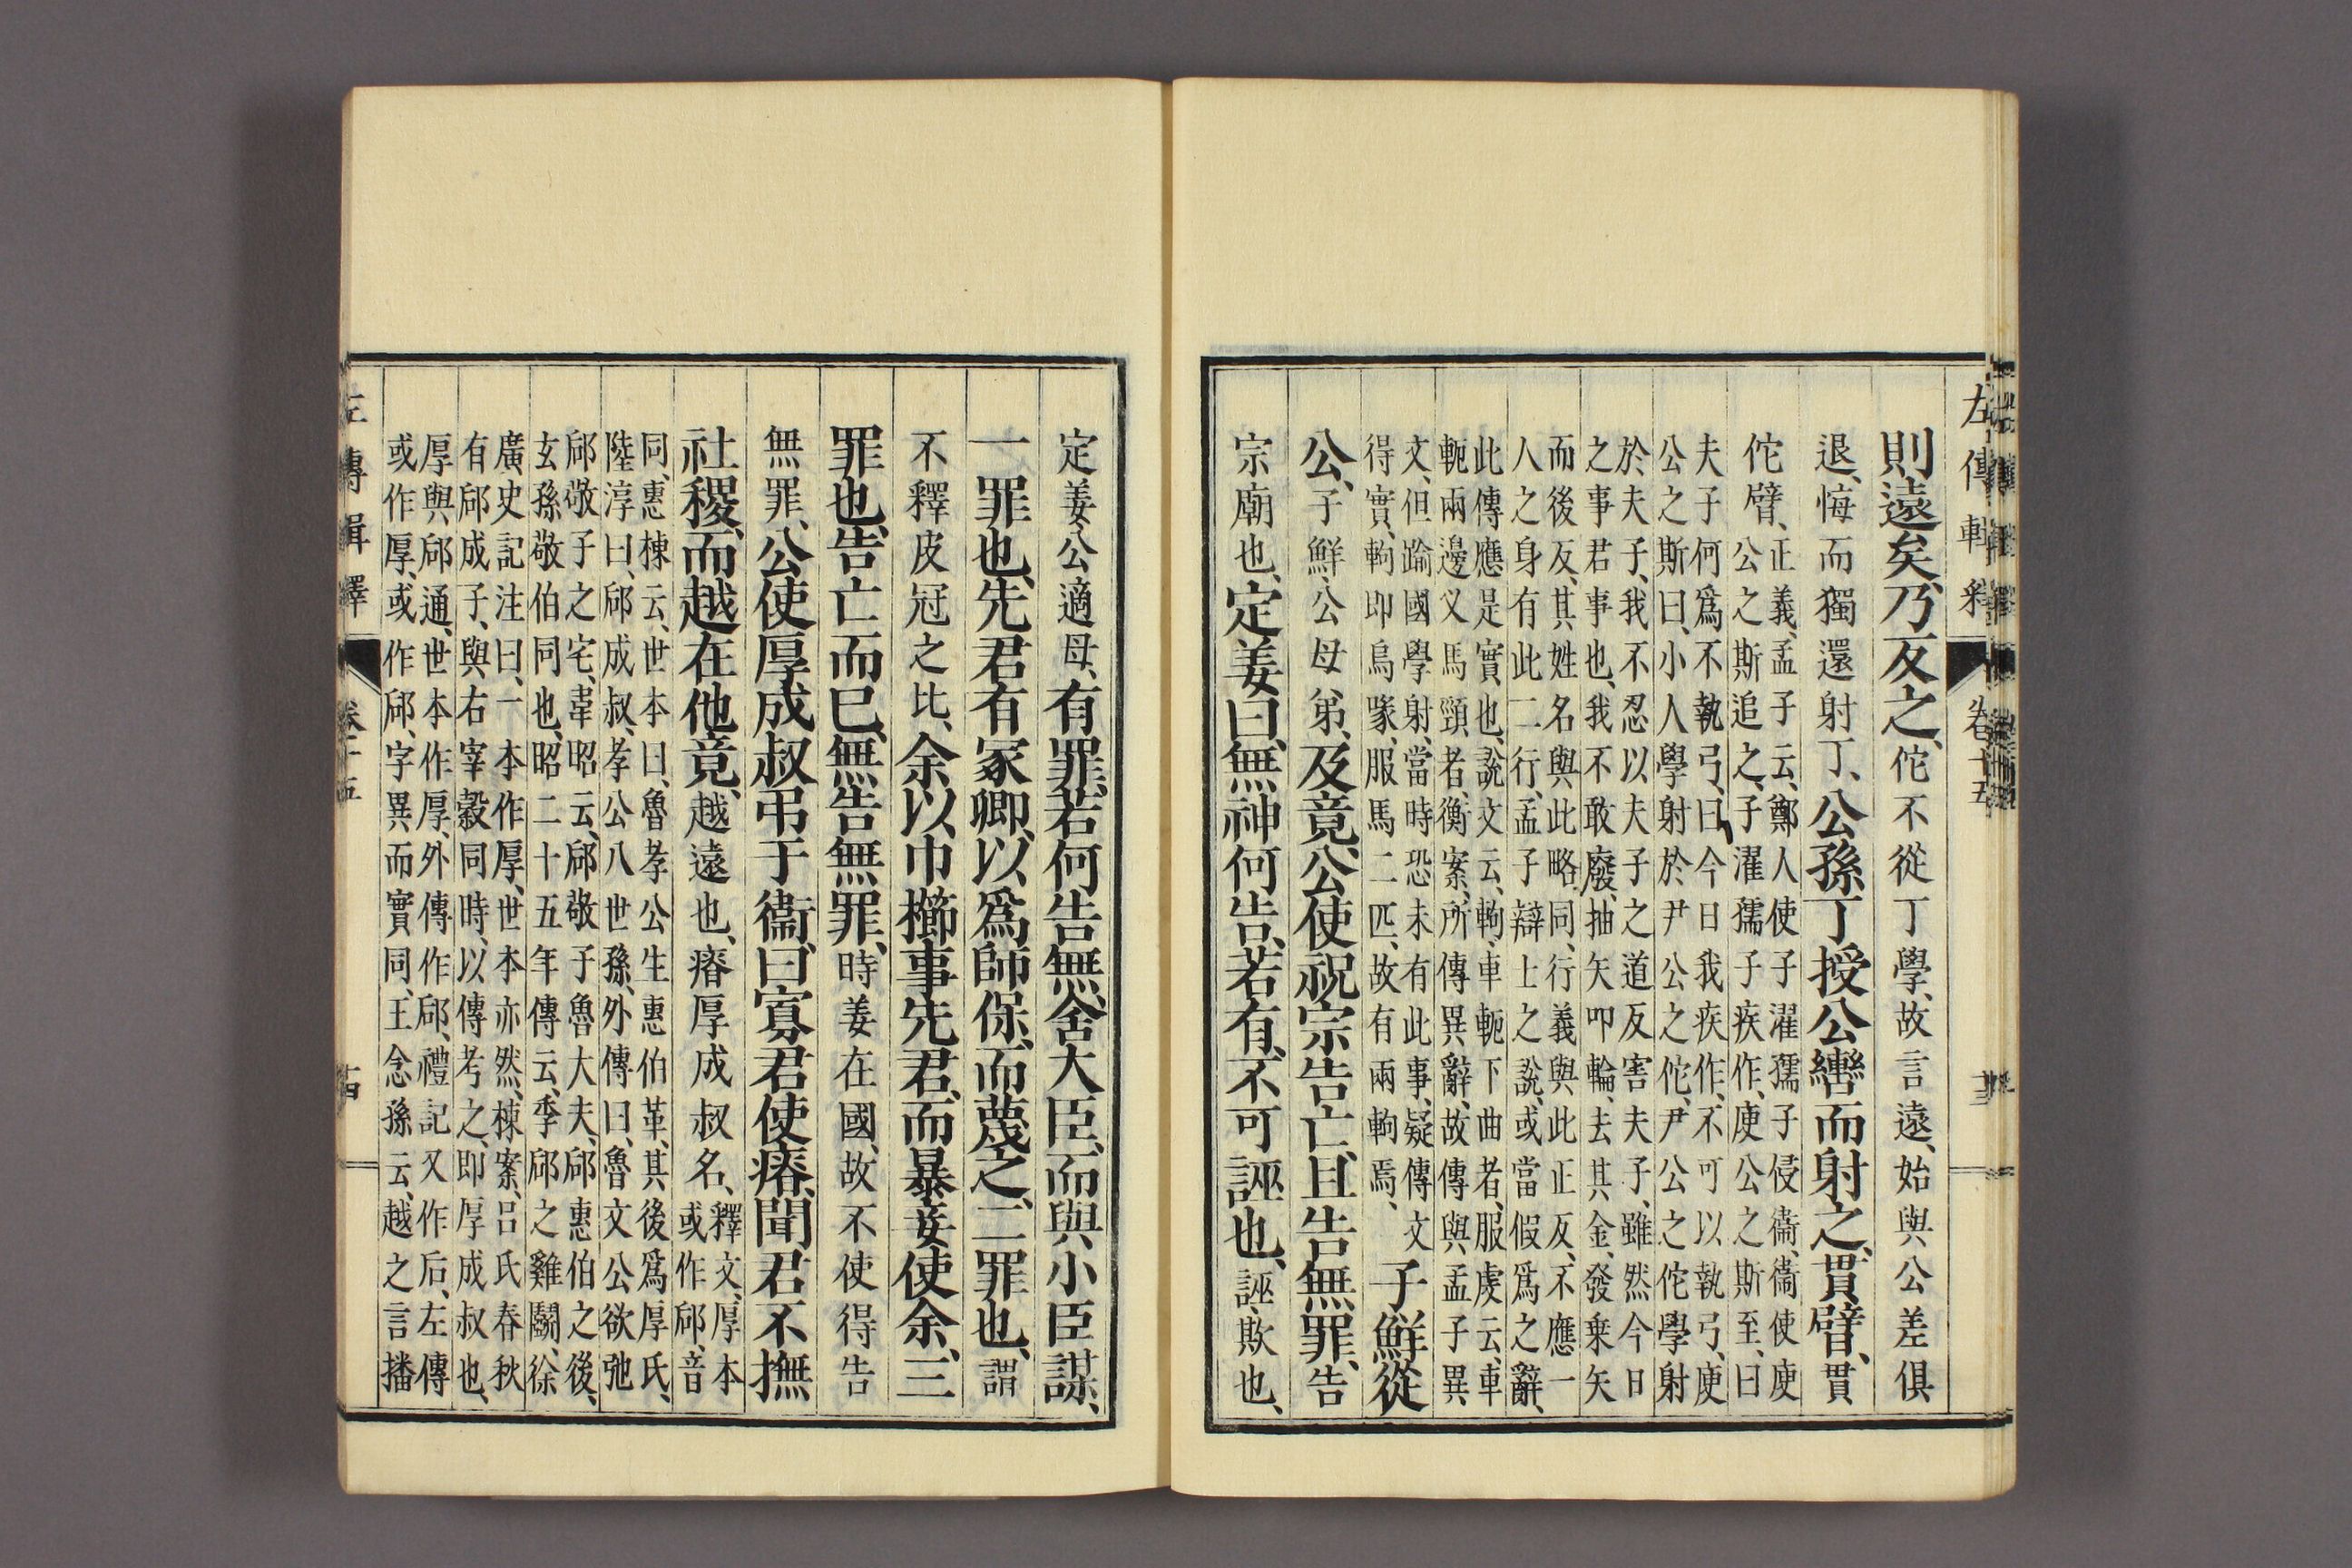 則遠矣、乃反之、佗不從丁學、故言遠、始與公差俱
退、悔而獨還射丁、公孫丁授公轡而射之、貫臂、貫
佗臂、
正義、孟子云、鄭人使子濯孺子侵衞、衞使庾
公之斯追之、子濯孺子疾作、庾公之斯至、曰
夫子何爲不執弓、曰今日我疾作、不可以執弓、庾
公之斯曰、小人學射於尹公之佗、尹公之佗學射
於夫子、我不忍以夫子之道反害夫子、雖然今日
之事君事也、我不敢廢、抽矢叩輪、去其金、發乘矢
而後反、其姓名與此略同、行義與此正反、不應一
人之身有此二行、孟子辯上之說、或當假爲之辭、
此傳應是實也、說文云、軥、車軛下曲者、服虔云、車
軛兩邊叉馬頸者、衡案、所傳異辭、故傳與孟子異
文、但踰國學射、當時恐未有此事、疑傳文
得實、軥即烏喙、服馬二匹、故有兩軥焉、
子鮮從
公、子鮮、公母弟、及竟、公使祝宗告亡、且告無罪、告
宗廟也、定姜曰、無神何告、若有、不可誣也、誣、欺也、
左傳輯釋 卷十五
定姜、公適母、有罪、若何告無、舍大臣、而與小臣謀、
一罪也、先君有冢卿、以爲師保、而蔑之、二罪也、謂
不釋皮冠之比、余以巾櫛事先君、而暴妾使余、三
罪也、告亡而已、無告無罪、時姜在國、故不使得告
無罪、公使厚成叔弔于衞、曰寡君使瘠、聞君不撫
社稷、而越在他竟、越遠也、瘠厚成叔名、
釋文、厚本
或作郈、音
同、惠棟云、世本曰、魯孝公生惠伯革、其後爲厚氏、
陸淳曰、郈成叔、孝公八世孫、外傳曰、魯文公欲弛
郈敬子之宅、韋昭云、郈敬子魯大夫、郈惠伯之後、
玄孫敬伯同也、昭二十五年傳云、季郈之雞鬭、徐
廣史記注曰、一本作厚、世本亦然、棟案、呂氏春秋
有郈成子、與右宰穀同時、以傳考之、即厚成叔也、
厚與郈通、世本作厚、外傳作郈、禮記又作后、左傳
或作厚、或作郈、字異而實同、王念孫云、越之言播
左傳輯釋 卷十五 十四